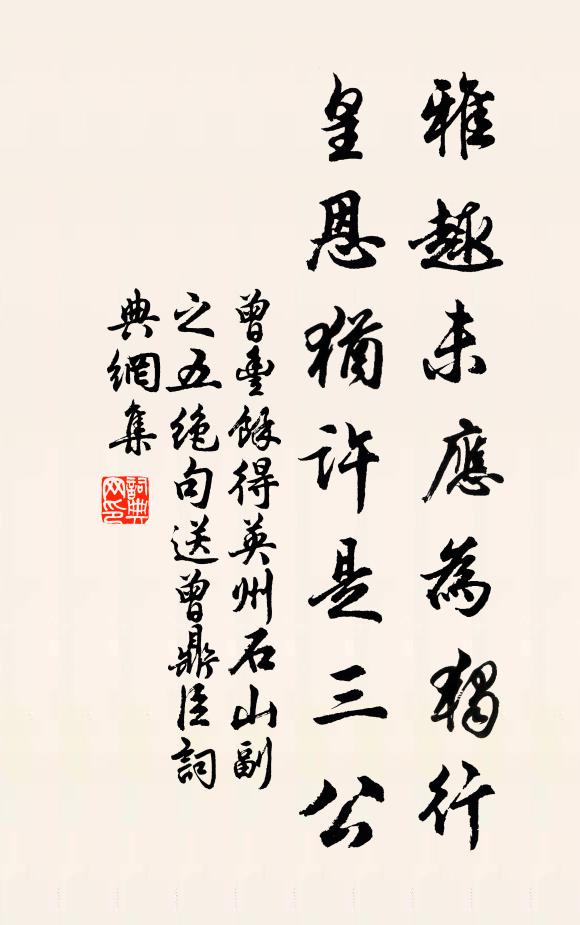 雅趣未應為獨行
皇恩猶許是三公
曾豐餘得英州石山副
之五絶句送曾鼎臣詞
典網集
詞典
网印